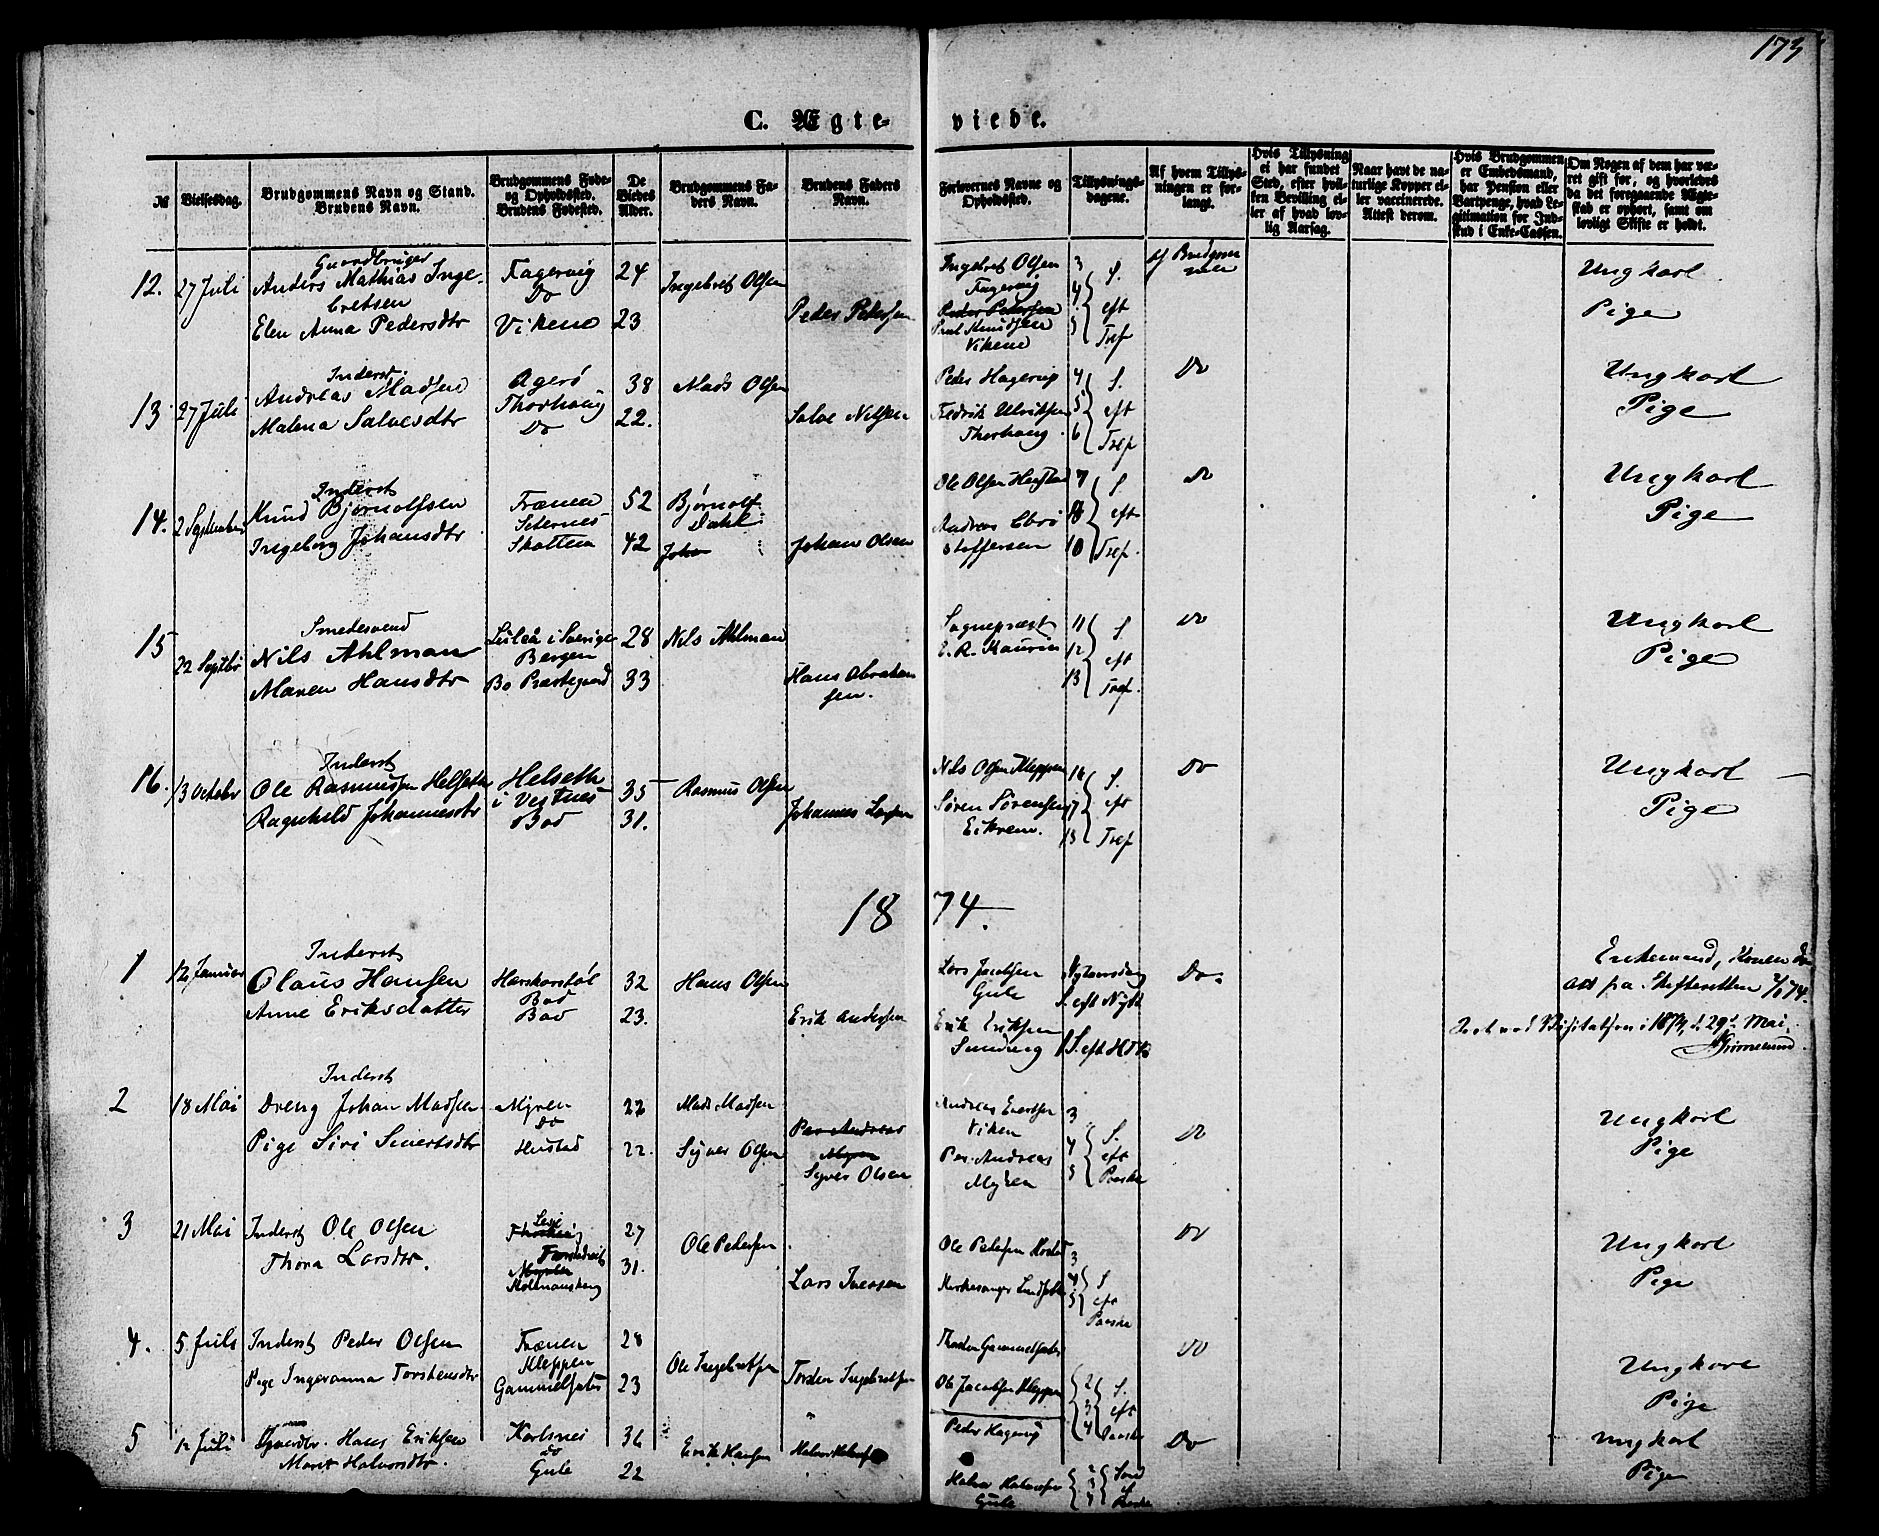 173
C. Ægteviede.
№
Vielsesdag.
Brudgommens Navn og Stand.
Brudens Navn.
Brudgommens Føde-
og Opholdssted.
Brudens Fødested.
De
Viedes
Alder.
Brudgommens Fa-
ders Navn.
Brudens Faders
Navn.
Forlovernes Navne og
Opholdssted.
Tillysnings-
dagene.
Af hvem Tillys-
ningen er for-
langt.
Hvis Tillysning
ei har fundet
Sted, efter hvil-
ken Bevilling el-
ler af hvad lov-
lig Aarsag.
Naar havt de na-
turlige Kopper el-
ler vaccinerede.
Attest derom.
Hvis Brudgommen
er Embedsmand,
har Pension eller
Vartpenge, hvad Le-
gitimation for Ind-
skud i Enke-Cassen.
Om Nogen af dem har væ-
ret gift før, og hvorledes
da det foregaaende Ægte-
skab er ophørt, samt om
lovligt Skifte er holdt.
12. 27 Juli Gaardbruger
Anders Mathias Inge-
bretsen
Elen Anna Pedersdtr
Fagervig
Do
Vikene
24
23
Ingebret Olsen
Peder Pedersen
Ingebret Olsen
Fagervig
Peder Pedersen
Paul Knudsen
Vikene
3
4 S.
5 eft
Tref
Af Brudgom
men
Ungkarl
Pige
13 27 Juli Inderst
Andreas Madsen
Malena Salvesdtr
Agerö
Thorhaug
Do
38
22.
Mads Olsen
Salve Nilsen
Peder Hagerup
Fredrik Ulriksen
Thorhaug
4 S.
5 eft
6 Tref
Do
Ungkarl
Pige
14. 2 September Inderst
Knud Bjørnolfsen
Ingeborg Johansdtr
Frænen
Seternes
Skotten
52
42
Bjørnolf
Dahl
Johan
Johan Olsen
Ole Olsen Hustad
Andreas
stoffersen
7 S
8 eft
10 Tref.
Do
Ungkarl
Pige
15 22 Septbr Smedesvend
Nils Ahlman
Maren Hansdtr
Luleå i Sverige
Bergen
Bo Præstegaard
28
33
Nils Ahlman
Hans Abraham
sen.
Sognepræst
E. R. Kaurin
11 S
12 eft
13 Tref.
Do
Ungkarl
Pige
16. 13 October Inderst
Ole Rasmussen Helseth
Ragnhild Johannesdtr
Helseth
i Vestnes
Bod
35
31.
Rasmus Olsen
Johannes Larsen
Nils Olsen Kleppen
Søren Sørensen
Eikrem.
16 S.
17 eft
18 Tref
Do
Ungkarl
Pige
1874.
1 12 Januar Inderst
Olaus Hansen
Anne Eriksdatter
Harskorstøl
Bod
Bod
32
23.
Hans Olsen
Erik Andersen
Lars Jacobsen
Gule
Erik Eriksen
Nytaarsdag
S. eft Nytt
1 S. eft H 3 K
Do.
Enkemand, Konen
paa Skifteretten 7/1 74.
ved Visitatsen i 1874, d. 29de Mai
Grimelund
2 18 Mai Inderst
Dreng Johan Madsen
Pige Siri Sivertsdtr
Myren
do
Hustad
22
22.
Mads Madsen
Syver Olsen
Per Andreas
Myren
Syver Olsen
Andreas Evertsen
Viken
Per Andreas
Myren
3
4 S.
5 eft
Paaske
Do
Ungkarl
Pige
3 21 Mai Inderst Ole Olsen
Thora Larsdtr.
27
31.
Ole Pedersen
Lars Iversen
Ole Pedersen
Kirkesanger
3
4 S
5 eft
Paaske
Do
Ungkarl
Pige
4. 5 Juli Inderst Peder Olsen
Pige Ingeranna Torstensdtr
Frænen
Kleppen
Gammelsæter
28
23
Ole Ingebretsen
Torsten Ingebretsen
Torsten Gammelsæter
Ole Jacobsen Kleppen
2 S.
3 eft
4 Paaske
Do
Ungkarl
Pige
5 12 Juli Gaardbr. Hans Eriksen
Marit Halvorsdtr.
Karlsnes
do
Gule
36
22
Erik Hansen
Peder Hagerup
Gule
2
3
Do
Ungkarl
Pige